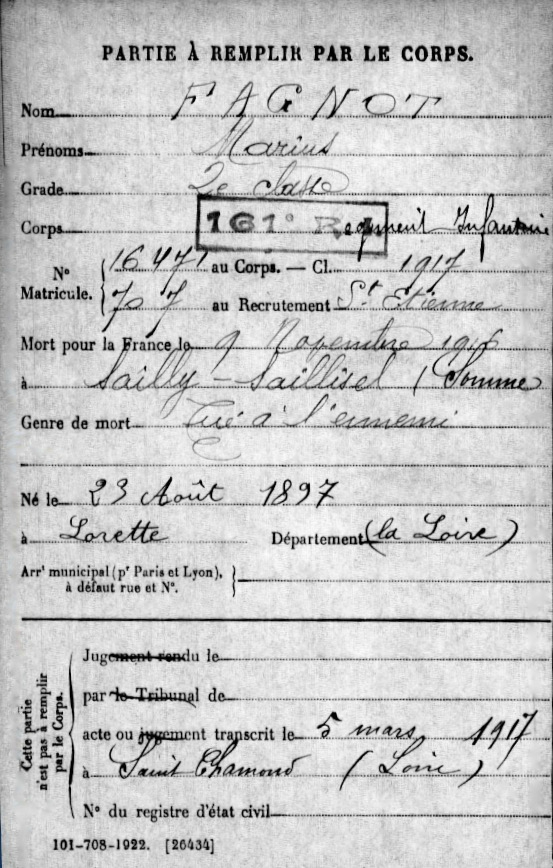 PARTIE À REMPLIR PAR LE CORPS.
Nom FAGNOT
Prénoms Marius
Grade 2e classe
Corps 161e R.I. Régiment Infanterie
N° Matricule. 16471 au Corps. — Cl. 1917
707 au Recrutement St Etienne
Mort pour la France le 9 Novembre 1916
à Sailly-Saillisel (Somme
Genre de mort Tué à l'ennemi
Né le 23 Août 1897
à Lorette Département (la Loire)
Arrt municipal (pr Paris et Lyon),
à défaut rue et N°.
Cette partie n'est pas à remplir par le Corps.
Jugement rendu le
par le Tribunal de
acte ou jugement transcrit le 5 mars 1917
à Saint Chamond (Loire)
N° du registre d'état civil
101-708-1922. [26434]